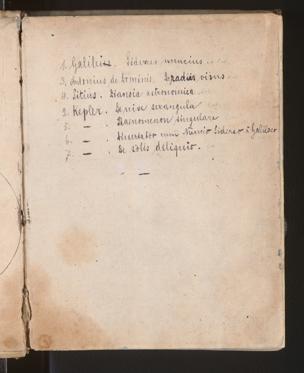 1. Galileis. Sidereus nuncius...
3. Antonius de Dominis. De radiis visus...
4. Sitius. Dianoia astronomica...
2. Kepler. De nive sexangula
5. — . Phaenomenon singulare
6. — . Dissertatio cum Nuncio Sidereo a Galilaeo
7. — . De solis deliquio.
—